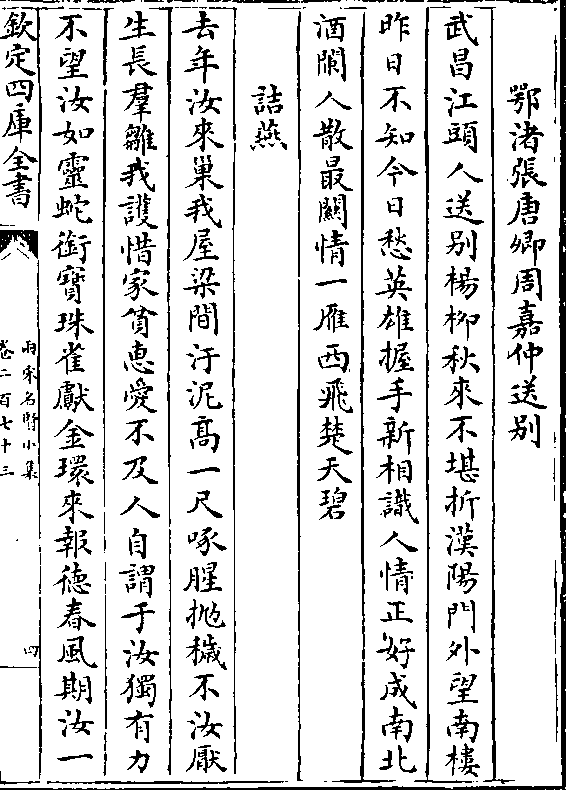 鄂渚張唐卿周嘉仲送别
武昌江頭人送别楊柳秋來不堪折漢陽門外望南樓
昨日不知今日愁英雄握手新相識人情正好成南北
酒闌人散最闗情一雁西飛楚天碧
詰燕
去年汝來巢我屋梁間汙泥髙一尺啄腥抛穢不汝厭
生長羣雛我護惜家貧恵愛不及人自謂于汝獨有力
不望汝如靈蛇銜寶珠雀獻金環來報徳春風期汝一
欽定四庫全書
兩宋名賢小集
卷二百七十三
四